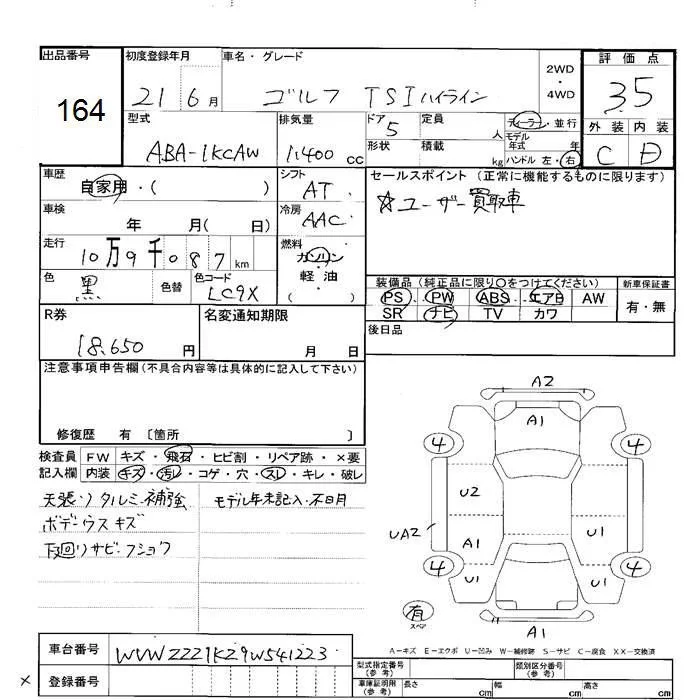 出品番号 初度登録年月 車名・グレード 評価点
164 21 6月 ゴルフ TSIハイライン 2WD ・ 4WD 3.5
型式 排気量 ドア 定員 ディーラー・並行 外装 内装
ABA-1KCAW 1,400cc 5 人 モデル年式 年 C D
形状 積載 kg ハンドル 左・右
車歴 シフト セールスポイント (正常に機能するものに限ります)
自家用・( ) AT ☆ユーザー買取車
車検 年 月( 日) 冷房 AAC
走行 10万9千087km 燃料 ガソリン・軽油 ( )
色 黒 色替 色コード LC9X
装備品(純正品に限り○をつけてください) 新車保証書
PS・PW・ABS・エアB AW 有・無
SR ナビ TV カワ
R券 18,650円 名変通知期限 月 日 後日品
注意事項申告欄(不具合内容等は具体的に記入して下さい)
修復歴 有 〔箇所 〕
検査員記入欄 FW キズ・飛石・ヒビ割・リペア跡・×要
内装 キズ・汚レ・コゲ・穴・スレ・キレ・破レ
天張リタルミ・補強 モデル年未記入・不日月
ボデーウスキズ
下回リサビ・フショク
A2
A1
4 4
U2
UA2 U1
A1
4 U1 U1 4
有 スペア
A1
A−キズ E−エクボ U−凹み W−補修跡 S−サビ C−腐食 XX−交換済
車台番号 WVWZZZ1KZ9W541223
× 登録番号
型式指定番号(参考) 類別区分番号(参考)
車庫証明用(参考) 長さ cm 幅 cm 高さ cm